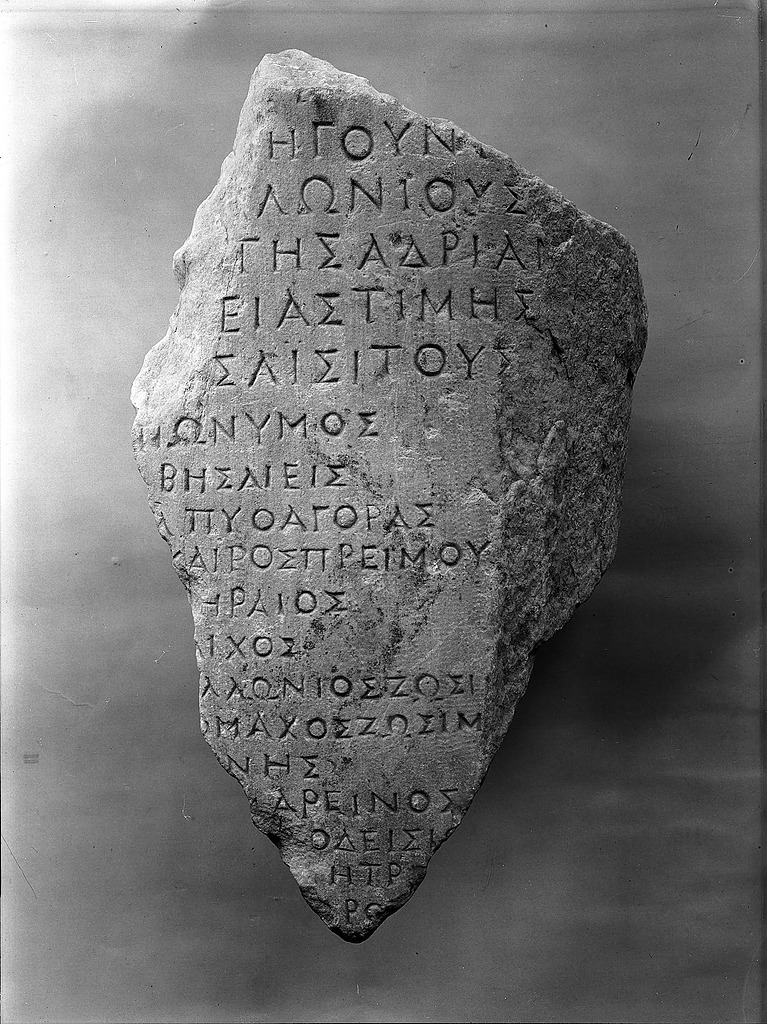 ΗΓΟΥΝ
ΛΩΝΙΟΥΣ
ΓΗΣΑΔΡΙΑΝ
ΕΙΑΣΤΙΜΗΣ
ΣΑΙΣΙΤΟΥΣ
ΩΝΥΜΟΣ
ΒΗΣΑΙΕΙΣ
ΠΥΘΑΓΟΡΑΣ
ΑΙΡΟΣΠΡΕΙΜΟΥ
ΗΡΑΙΟΣ
ΙΧΟΣ
ΛΛΩΝΙΟΣΖΩΣΙ
ΟΜΑΧΟΣΖΩΣΙΜ
ΝΗΣ
ΑΡΕΙΝΟΣ
ΟΔΕΙΣΙ
ΗΤΡ
ΡΟ